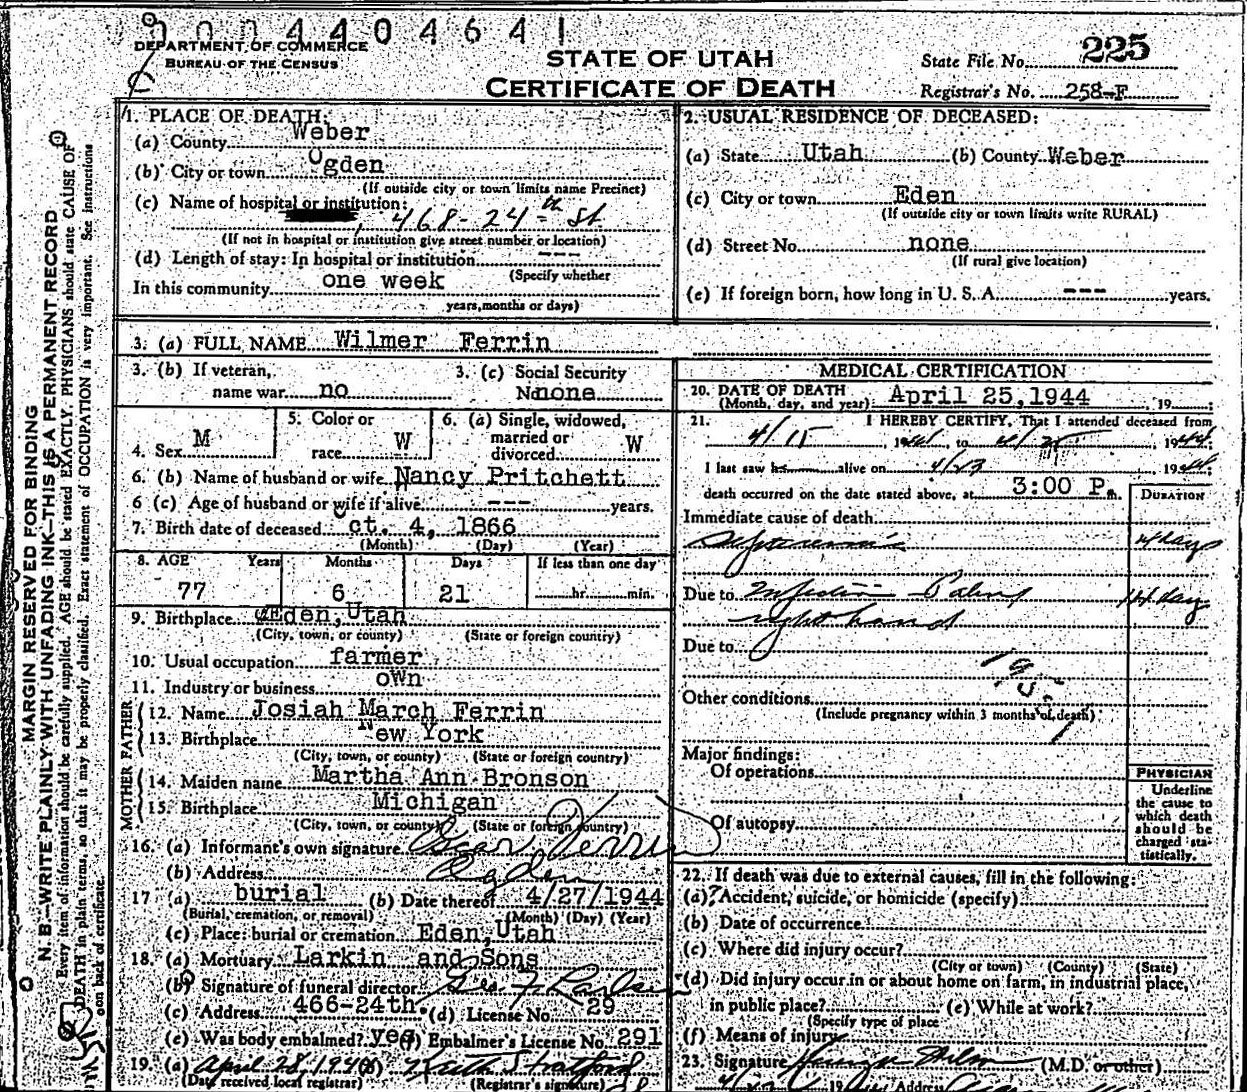 0004404641
DEPARTMENT OF COMMERCE
BUREAU OF THE CENSUS
STATE OF UTAH
CERTIFICATE OF DEATH
State File No. 225
Registrar's No. 258-F
MARGIN RESERVED FOR BINDING
N. B.—WRITE PLAINLY WITH UNFADING INK—THIS IS A PERMANENT RECORD
Every item of information should be carefully supplied. AGE should be stated EXACTLY. PHYSICIANS should state CAUSE OF
DEATH in plain terms, so that it may be properly classified. Exact statement of OCCUPATION is very important. See instructions
on back of certificate.
1. PLACE OF DEATH:
(a) County Weber
(b) City or town Ogden
(If outside city or town limits name Precinct)
(c) Name of hospital or institution:
468-24th St.
(If not in hospital or institution give street number or location)
(d) Length of stay: In hospital or institution ---
(Specify whether
In this community one week
years, months or days)
2. USUAL RESIDENCE OF DECEASED:
(a) State Utah (b) County Weber
(c) City or town Eden
(If outside city or town limits write RURAL)
(d) Street No. none
(If rural give location)
(e) If foreign born, how long in U. S. A. --- years.
3. (a) FULL NAME Wilmer Ferrin
3. (b) If veteran,
name war no
3. (c) Social Security
No none
4. Sex M
5. Color or
race W
6. (a) Single, widowed,
married or
divorced W
6. (b) Name of husband or wife Nancy Pritchett
6 (c) Age of husband or wife if alive --- years.
7. Birth date of deceased Oct. 4, 1866
(Month) (Day) (Year)
8. AGE Years Months Days If less than one day
77 6 21 hr. min.
9. Birthplace Eden, Utah
(City, town, or county) (State or foreign country)
10. Usual occupation farmer
11. Industry or business own
FATHER
12. Name Josiah March Ferrin
13. Birthplace New York
(City, town, or county) (State or foreign country)
MOTHER
14. Maiden name Martha Ann Bronson
15. Birthplace Michigan
(City, town, or county) (State or foreign country)
16. (a) Informant's own signature Oscar Ferrin
(b) Address Ogden
17 (a) burial (b) Date thereof 4/27/1944
(Burial, cremation, or removal) (Month) (Day) (Year)
(c) Place: burial or cremation Eden, Utah
18. (a) Mortuary Larkin and Sons
(b) Signature of funeral director Geo F Larkin
(c) Address 466-24th (d) License No. 29
(e) Was body embalmed? yes (f) Embalmer's License No. 291
19. (a) April 28, 1944 (b) Keith Stratford
(Date received local registrar) (Registrar's signature)
MEDICAL CERTIFICATION
20. DATE OF DEATH
(Month, day, and year): April 25, 1944, 19
21. I HEREBY CERTIFY, That I attended deceased from
4/15, 1944 to 4/25, 1944
I last saw h alive on 4/23 1944
death occurred on the date stated above, at 3:00 P m.
DURATION
Immediate cause of death
Septicemia 14 days
Due to Infection Palm 14 days
right hand
Due to
Other conditions
(Include pregnancy within 3 months of death)
Major findings:
Of operations
Of autopsy
PHYSICIAN
Underline
the cause to
which death
should be
charged sta-
tistically.
22. If death was due to external causes, fill in the following:
(a) ? Accident, suicide, or homicide (specify)
(b) Date of occurrence
(c) Where did injury occur?
(City or town) (County) (State)
(d) Did injury occur in or about home on farm, in industrial place,
in public place? (e) While at work?
(Specify type of place
(f) Means of injury
23. Signature (M.D. or other)
19 Address